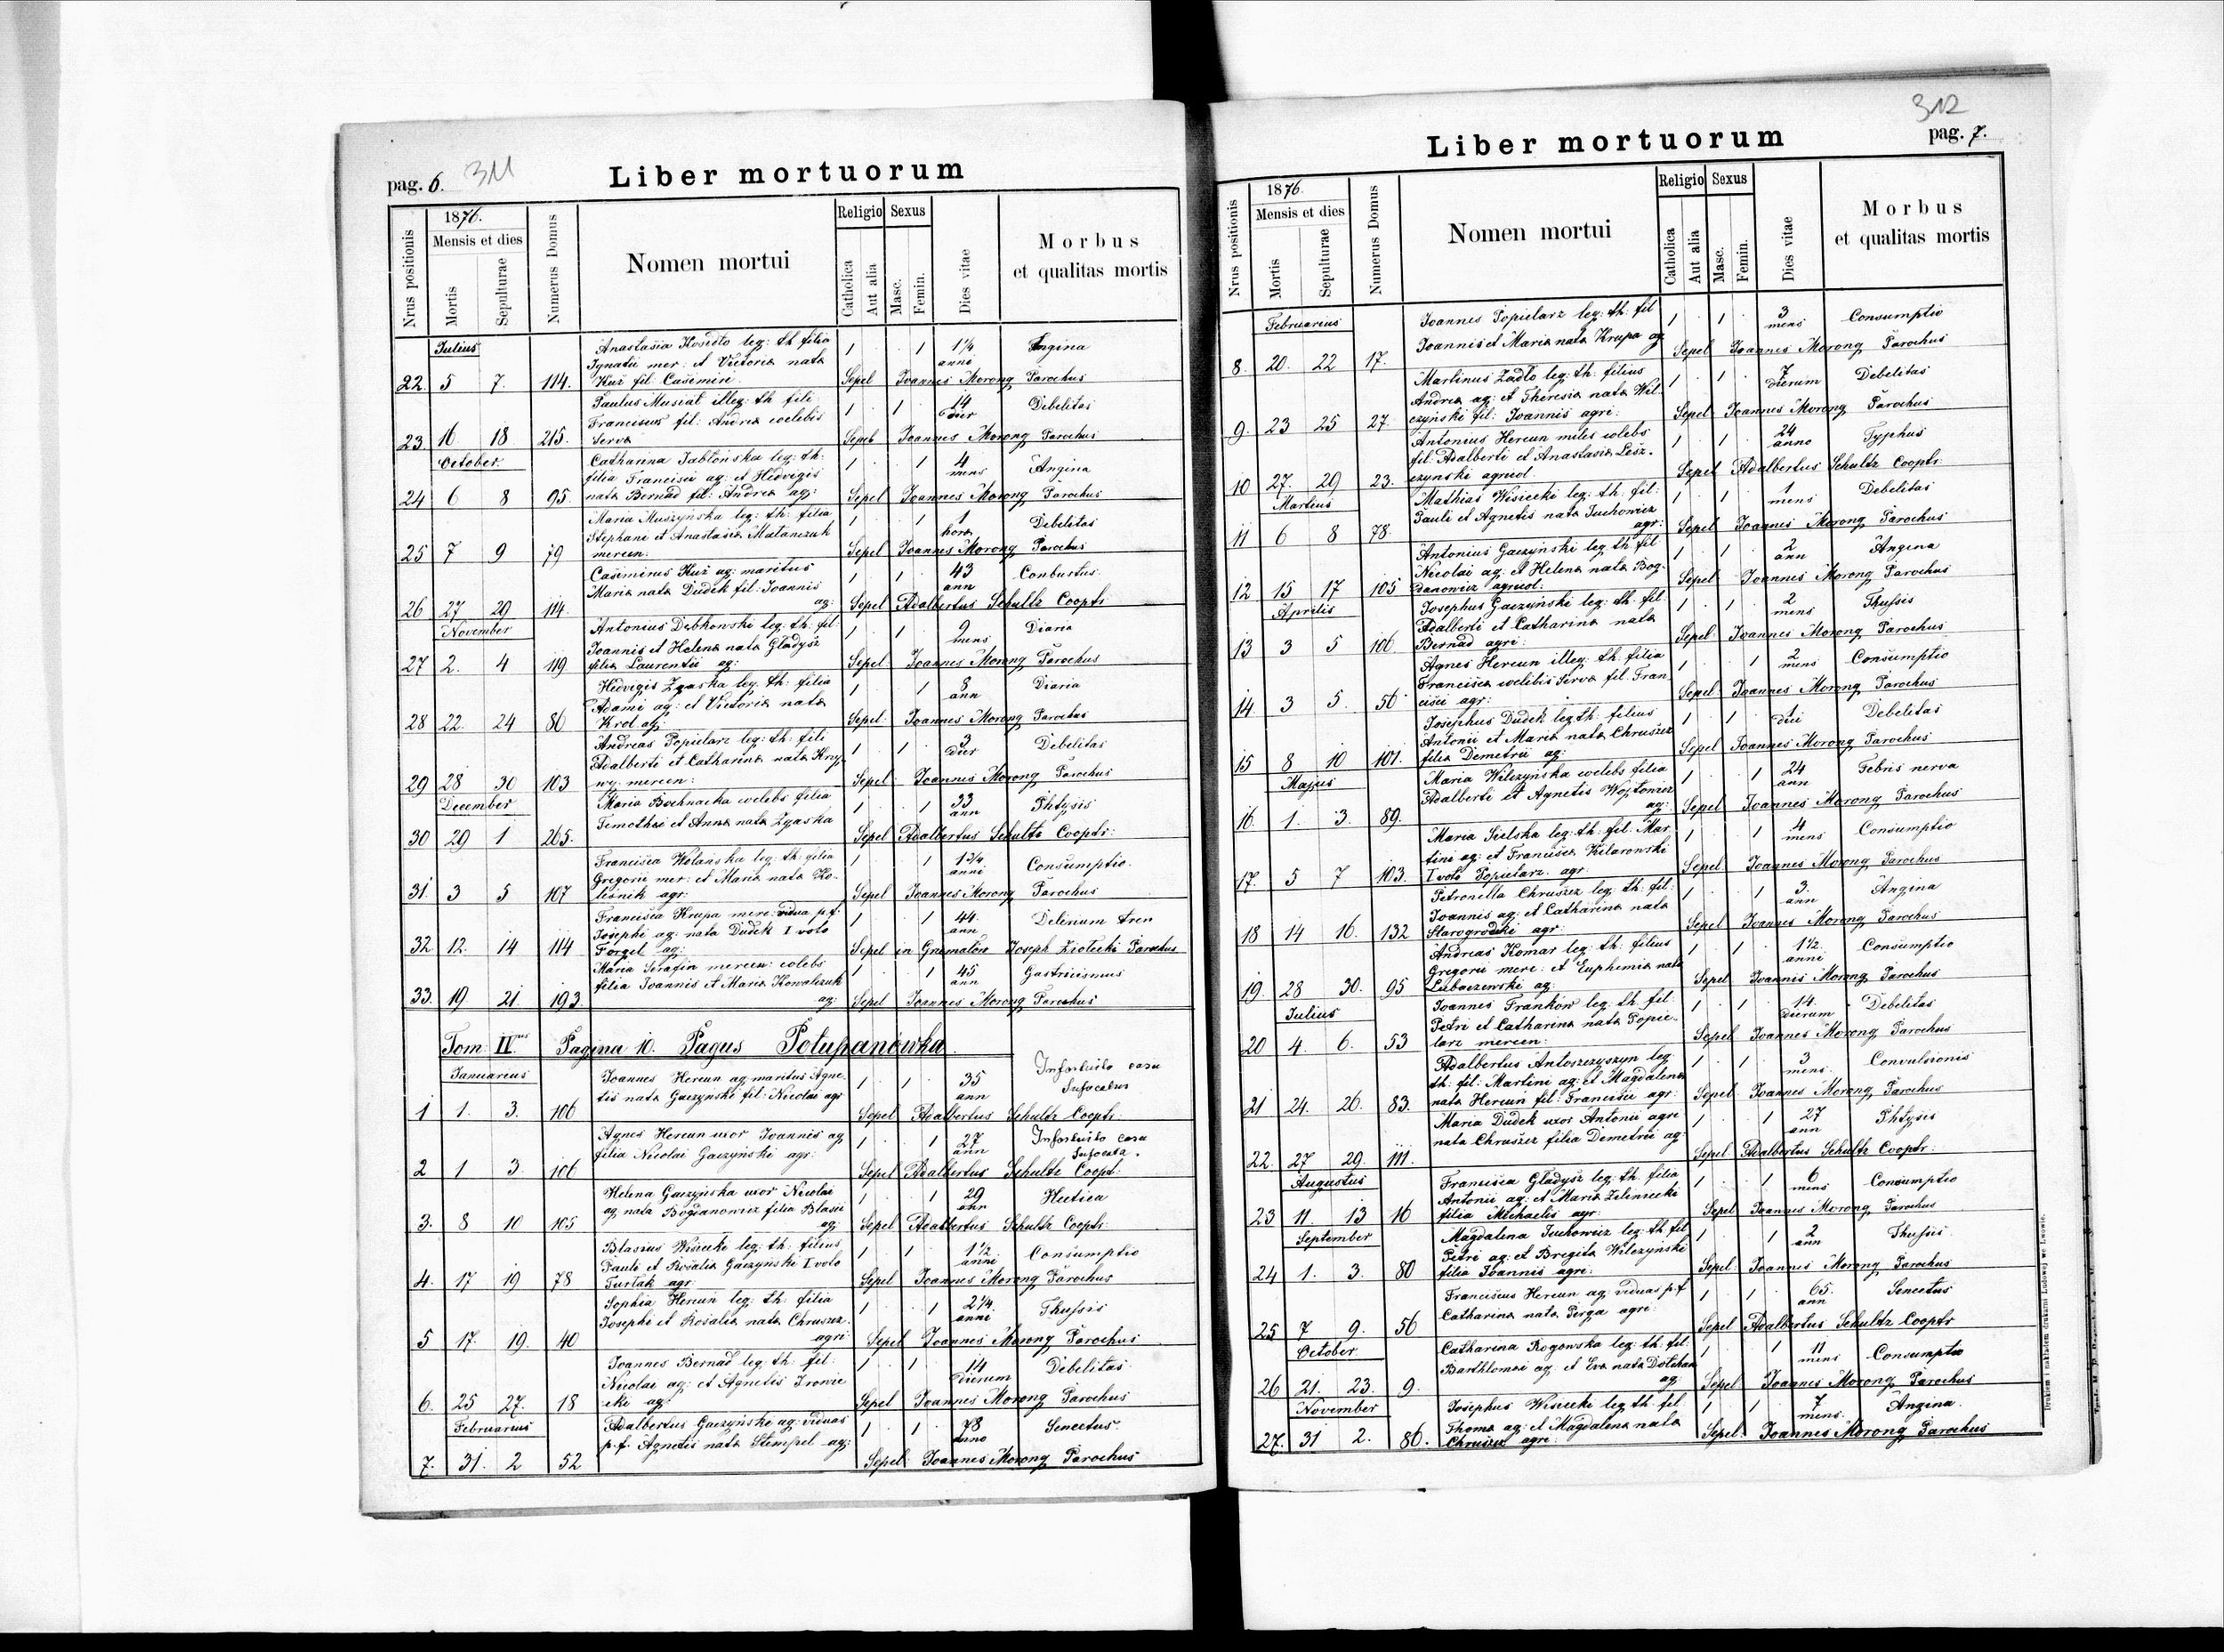 pag. 6. 311
Liber mortuorum
Nrus positionis
1876.
Mensis et dies
Mortis
Sepulturae
Numerus Domus
Nomen mortui
Religio
Catholica
Aut alia
Sexus
Masc.
Femin.
Dies vitae
Morbus
et qualitas mortis
Julius
Anastasia leg: th filia 1 1 1¼ Angina
Ignatii mer: et Victoria nata anni
22. 5 7. 114. Kuź fil. Casimiri. Sepel Joannes Morong Parochus
Paulus Musiał illeg: th fili 1 1 14 Debelitas
Francisca fil: Andrea coelebis dier
23. 16 18 215. Serva Sepel Joannes Morong Parochus
October.
Catharina Jabłońska leg: th. 1 1 4 Angina
filia Francisci ag: et Hedvigis mens
24 6 8 95. nata Bernad fil: Andrea ag: Sepel Joannes Morong Parochus
Maria Muszyńska leg: th: filia 1 1 1 Debelitas
Stephani et Anastasia Matanczuk hora
25 7 9 79 mercen: Sepel Joannes Morong Parochus
Casimirus Kuź ag: maritus 1 1 43 Conbustus.
Maria nata Dudek fil: Joannis ann
26 27 29 114. ag: Sepel Adalbertus Schultz Cooptr
November
Antonius Dębkowski leg: th: fil: 1 1 9 Diaria
Joannis et Helena nata Gładysz mens
27 2. 4 119 filia Laurentii ag: Sepel Joannes Morong Parochus
Hedvigis Zgaska leg. th: filia 1 1 8 Diaria
Adami ag: et Victoria nata ann
28 22. 24 86 Krol ag: Sepel: Joannes Morong Parochus
Andreas Popielarz leg: th: fili 1 1 3 Debelitas
Adalberti et Catharina nata dier
29 28 30 103 mercen: Sepel Joannes Morong Parochus
December
Maria Bochnacka coelebs filia 1 1 33 Phtysis
Timothei et Anna nata Zgaska ann
30 29 1 265. Sepel Adalbertus Schultz Cooptr:
Francisca Wolańska leg: th: filia 1 1 1¾ Consumptio.
Gregorii mer: et Maria nata Ko- anni
31. 3 5 107 lisnik agr: Sepel Joannes Morong Parochus
Francisca Krupa merc: vidua p.f. 1 1 44. Delerium tren
Josephi ag: nata Dudek I voto ann
32 12. 14 114 Forgel ag: Sepel in Grzmałow Joseph Parochus
Maria Serafin mercen: coelebs 1 1 45 Gastricismus
filia Joannis et Maria Kowalczuk ann
33. 19 21. 193. ag: Sepel Joannes Morong Parochus
Tom: IVus Pagina 10. Pagus Potupanówka
Januarius
Joannes Hercun ag maritus Agne- 1 1 35 Infortuito casu
tis nata Gaczyński fil: Nicolai agr ann Sufocatus
1 1. 3. 106 Sepel Adalbertus Schultz Cooptr:
Agnes Hercun uxor Joannis ag 1 1 27 Infortuito casu
filia Nicolai Gaczyński agr: ann Sufocata.
2 1 3. 106 Sepel Adalbertus Schultz Coopt:
Helena Gaczyńska uxor Nicolai 1 1 29 Hectica
ag nata Bogdanowicz filia Blasii ann
3. 8 10 105 ag: Sepel Adalbertus Schultz Cooptr:
Blasius Wisiecki leg: th: filius 1 1 1½ Consumptio
Pauli et Rosalia Gaczyński I voto anni
4. 17 19 78 Furtak agr: Sepel Joannes Morong Parochus
Sophia Hercun leg: th: filia 1 1 2¼. Thussis
Josephi et Rosalia nata Chruszcz anni
5 17. 19. 40 agri Sepel Joannes Morong Parochus
Joannes Bernad leg: th: fil: 1 1 14 Debelitas
Nicolai ag: et Agnetis Ironic dierum
6. 25 27. 18 cki ag: Sepel Joannes Morong Parochus
Februarius
Adalbertus Gaczyński ag: viduus 1 1 78 Senectus.
p.f. Agnetis nata Stempel ag: anno
7. 31. 2 52 Sepel: Joannes Morong Parochus
312
Liber mortuorum
pag. 7.
Nrus positionis
1876.
Mensis et dies
Mortis
Sepulturae
Numerus Domus
Nomen mortui
Religio
Catholica
Aut alia
Sexus
Masc.
Femin.
Dies vitae
Morbus
et qualitas mortis
Februarius
Joannes Popielarz leg: th: fil 1 1 3 Consumptio
Joannis et Maria nata Krupa ag mens
8. 20. 22 17. Sepel Joannes Morong Parochus
Martinus Zadło leg: th: filius 1 1 7 Debelitas
Andrea ag: et Theresia nata Wil- dierum
9. 23 25 27. czyński fil: Joannis agri: Sepel Joannes Morong Parochus
Antonius Hercun miles coelebs 1 1 24 Typhus
fil: Adalberti et Anastasia Lesz- anno
10 27. 29 23. czynski agricol Sepel Adalbertus Schultz Cooptr:
Martius
Mathias Wisiecki leg: th: fil: 1 1 1 Debelitas
Pauli et Agnetis nata Juchowicz mens
11 6 8 78. agr: Sepel Joannes Morong Parochus
Antonius Gaczyński leg: th fil 1 1 2 Angina
Nicolai ag: et Helena nata Bog- ann
12. 15 17 105 danowicz agricol: Sepel Joannes Morong Parochus
Aprilis
Josephus Gaczyński leg: th. fil. 1 1 2 Thussis
Adalberti et Catharina nata mens
13 3 5 106 Bernad agri: Sepel Joannes Morong Parochus
Agnes Hercun illeg: th: filia 1 1 2 Consumptio
Francisca coelebis Serva fil: Fran mens
14 3 5. 56 cisci agr: Sepel Joannes Morong Parochus
Josephus Dudek leg th: filius 1 1 1 Debelitas
Antonii et Maria nata Chruszcz diei
15 8 10 101. filia Demetrii ag: Sepel Joannes Morong Parochus
Majus
Maria Wilczyńska coelebs filia 1 1 24 Febris nerva
Adalberti et Agnetis Wojtowicz ann
16. 1. 3. 89. ag: Sepel Joannes Morong Parochus
Maria Sielska leg: th: fil: Mar- 1 1 4 Consumptio
tini ag: et Francisca Kilarowski mens
17. 5 7 103. I voto Popielarz. agr: Sepel Joannes Morong Parochus
Petronella Chruszcz leg: th: fil: 1 1 3. Angina
Joannis ag: et Catharina nata ann
18 14 16. 132 Starogrodzki agr: Sepel Joannes Morong Parochus
Andreas Komar leg: th: filius 1 1 1½. Consumptio
Gregorii merc: et Euphemia nata anni
19. 28 30. 95 Lubaczewski ag: Sepel Joannes Morong Parochus
Julius
Joannes Frankow leg: th. fil: 1 1 14. Debelitas
Petri et Catharina nata Popie- dierum
20 4. 6. 53 larz mercen: Sepel Joannes Morong Parochus
Adalbertus Antoszczyszyn leg: 1 1 3 Convulsionis
th: fil: Martini ag: et Magdalena mens
21 24. 26. 83. nata Hercun fil: Francisci agr: Sepel Joannes Morong Parochus
Maria Dudek uxor Antonii agri 1 1 27 Phtysis
nata Chruszcz filia Demetrii ag: ann
22. 27 29. 111. Sepel Adalbertus Schultz Cooptr:
Augustus
Francisca Gładysz leg: th: filia 1 1 6 Consumptio
Antonii ag: et Maria Zeleniecki mens
23 11. 13 16 filia Michaelis agr: Sepel Joannes Morong Parochus
September
Magdalena Juchowicz leg: th: fil 1 1 2 Thussis.
Petri ag: et Bregita Wilczyński ann
24 1. 3. 80 filia Joannis agri: Sepel Joannes Morong Parochus
Franciscus Hercun ag: viduus p.f. 1 1 65. Senectus
Catharina nata Perga agri: ann
25 7 9. 56 Sepel Adalbertus Schultz Cooptr
October
Catharina Rogowska leg: th: fil: 1 1 11 Consumptio
Barthlomai ag. et Eva nata mens
26 21. 23. 9. ag: Sepel Joannes Morong Parochus
November
Josephus Wisiecki leg: th. fil. 1 1 7 Angina.
Thoma ag: et Magdalena nata mens.
27. 31 2. 86. Chruszcz agri: Sepel: Joannes Morong Parochus
Drukiem i nakładem drukarni Ludowej we Lwowie.